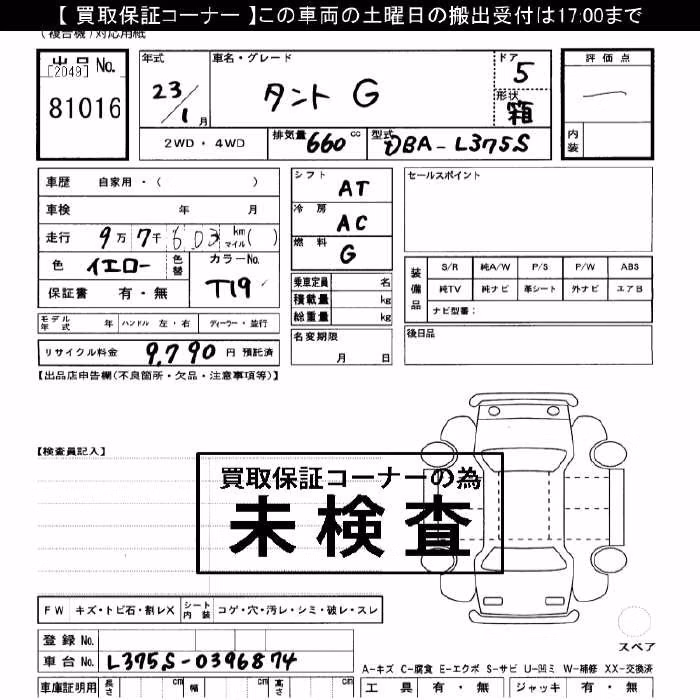 【 買取保証コーナー 】この車両の土曜日の搬出受付は17:00まで
(複合機)対応用紙
出品 No.
[2049]
81016
年式
23/1月
車名・グレード
タント G
ドア
5
形状
箱
評価点
内装
2WD・4WD
排気量 660 cc
型式 DBA-L375S
車歴 自家用・( )
車検 年 月
走行 9万7千603 km マイル( )
色 イエロー 色替
カラーNo.
T19
保証書 有・無
シフト AT
冷房 AC
燃料 G
乗車定員 名
積載量 kg
総重量 kg
セールスポイント
装備品
S/R 純A/W P/S P/W ABS
純TV 純ナビ 革シート 外ナビ エアB
ナビ型番:
モデル年式 年 ハンドル 左・右 ディーラー・並行
名変期限
月 日
後日品
リサイクル料金 9,790 円 預託済
【出品店申告欄(不良箇所・欠品・注意事項等)】
【検査員記入】
買取保証コーナーの為
未検査
FW キズ・トビ石・割レX シート内装 コゲ・穴・汚レ・シミ・破レ・スレ
スペア
登録 No.
車台 No. L375S-0396874
A-キズ C-腐食 E-エクボ S-サビ U-凹ミ W-補修 XX-交換済
車庫証明用 長さ cm 幅 cm 高さ cm
工具 有・無 ジャッキ 有・無